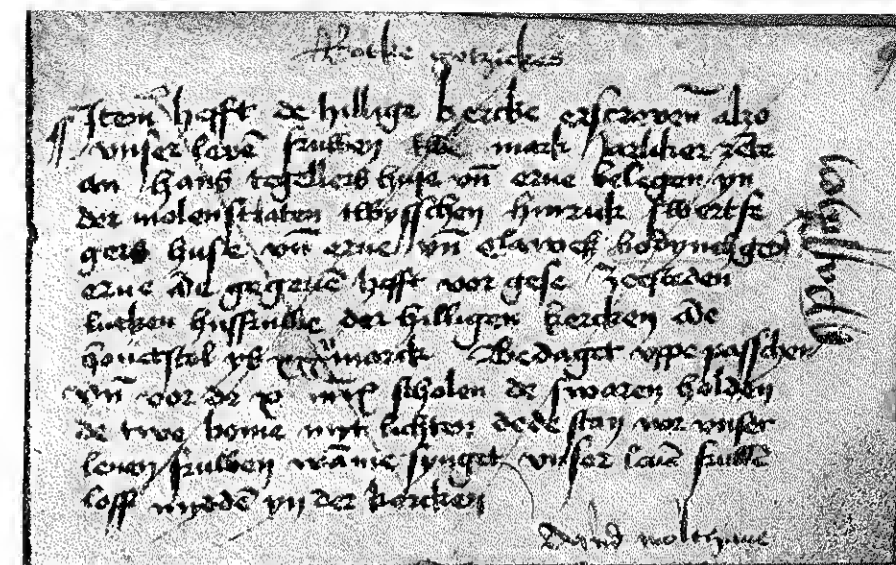 gotzickes
Item hefft de hillige kercke erscreven also
vnser leven fruwen twe mark jarliker rēte
an hans tegellers huse vn̄ erue belegen yn
der molenstraten twysschen hinrick swertfe
gers huse vn̄ erue vn̄ clawes
erue de gegeuē hefft vor gese
lutken husfruwe der hilligen kercken de
houetstol ys marck Bedaget vppe passchen
vn̄ vor de x mr̄k scholen de swaren holden
de twe bome myt lichten de de stan vor vnser
leuen fruwen wāme synget vnser leuē fruwē
loff myddē yn der kercken
passchen